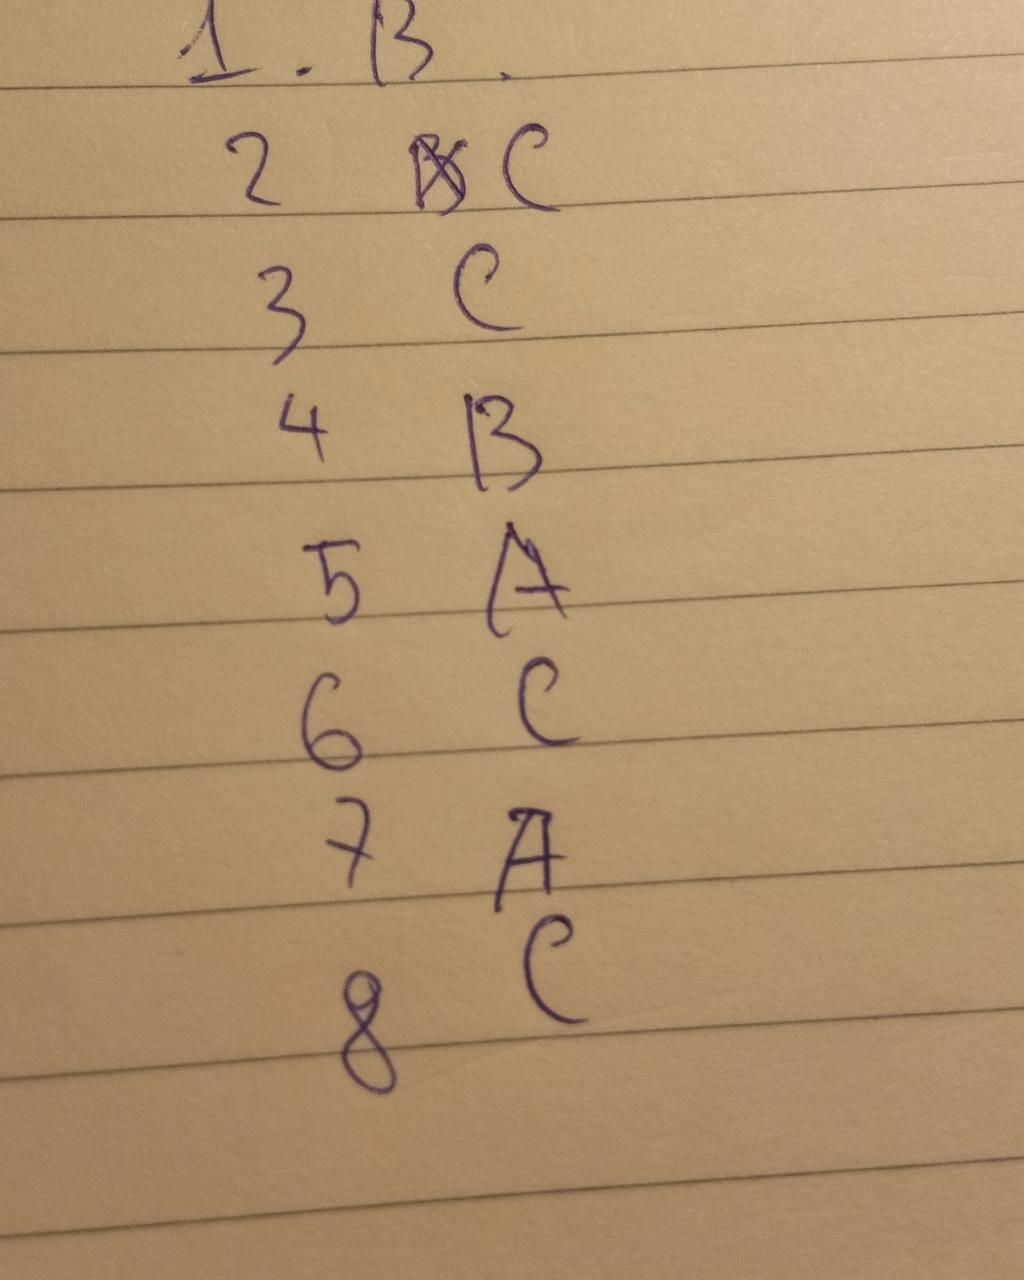 1. B.
2 C
3 C
4 B
5 A
6 C
7 A
8 C